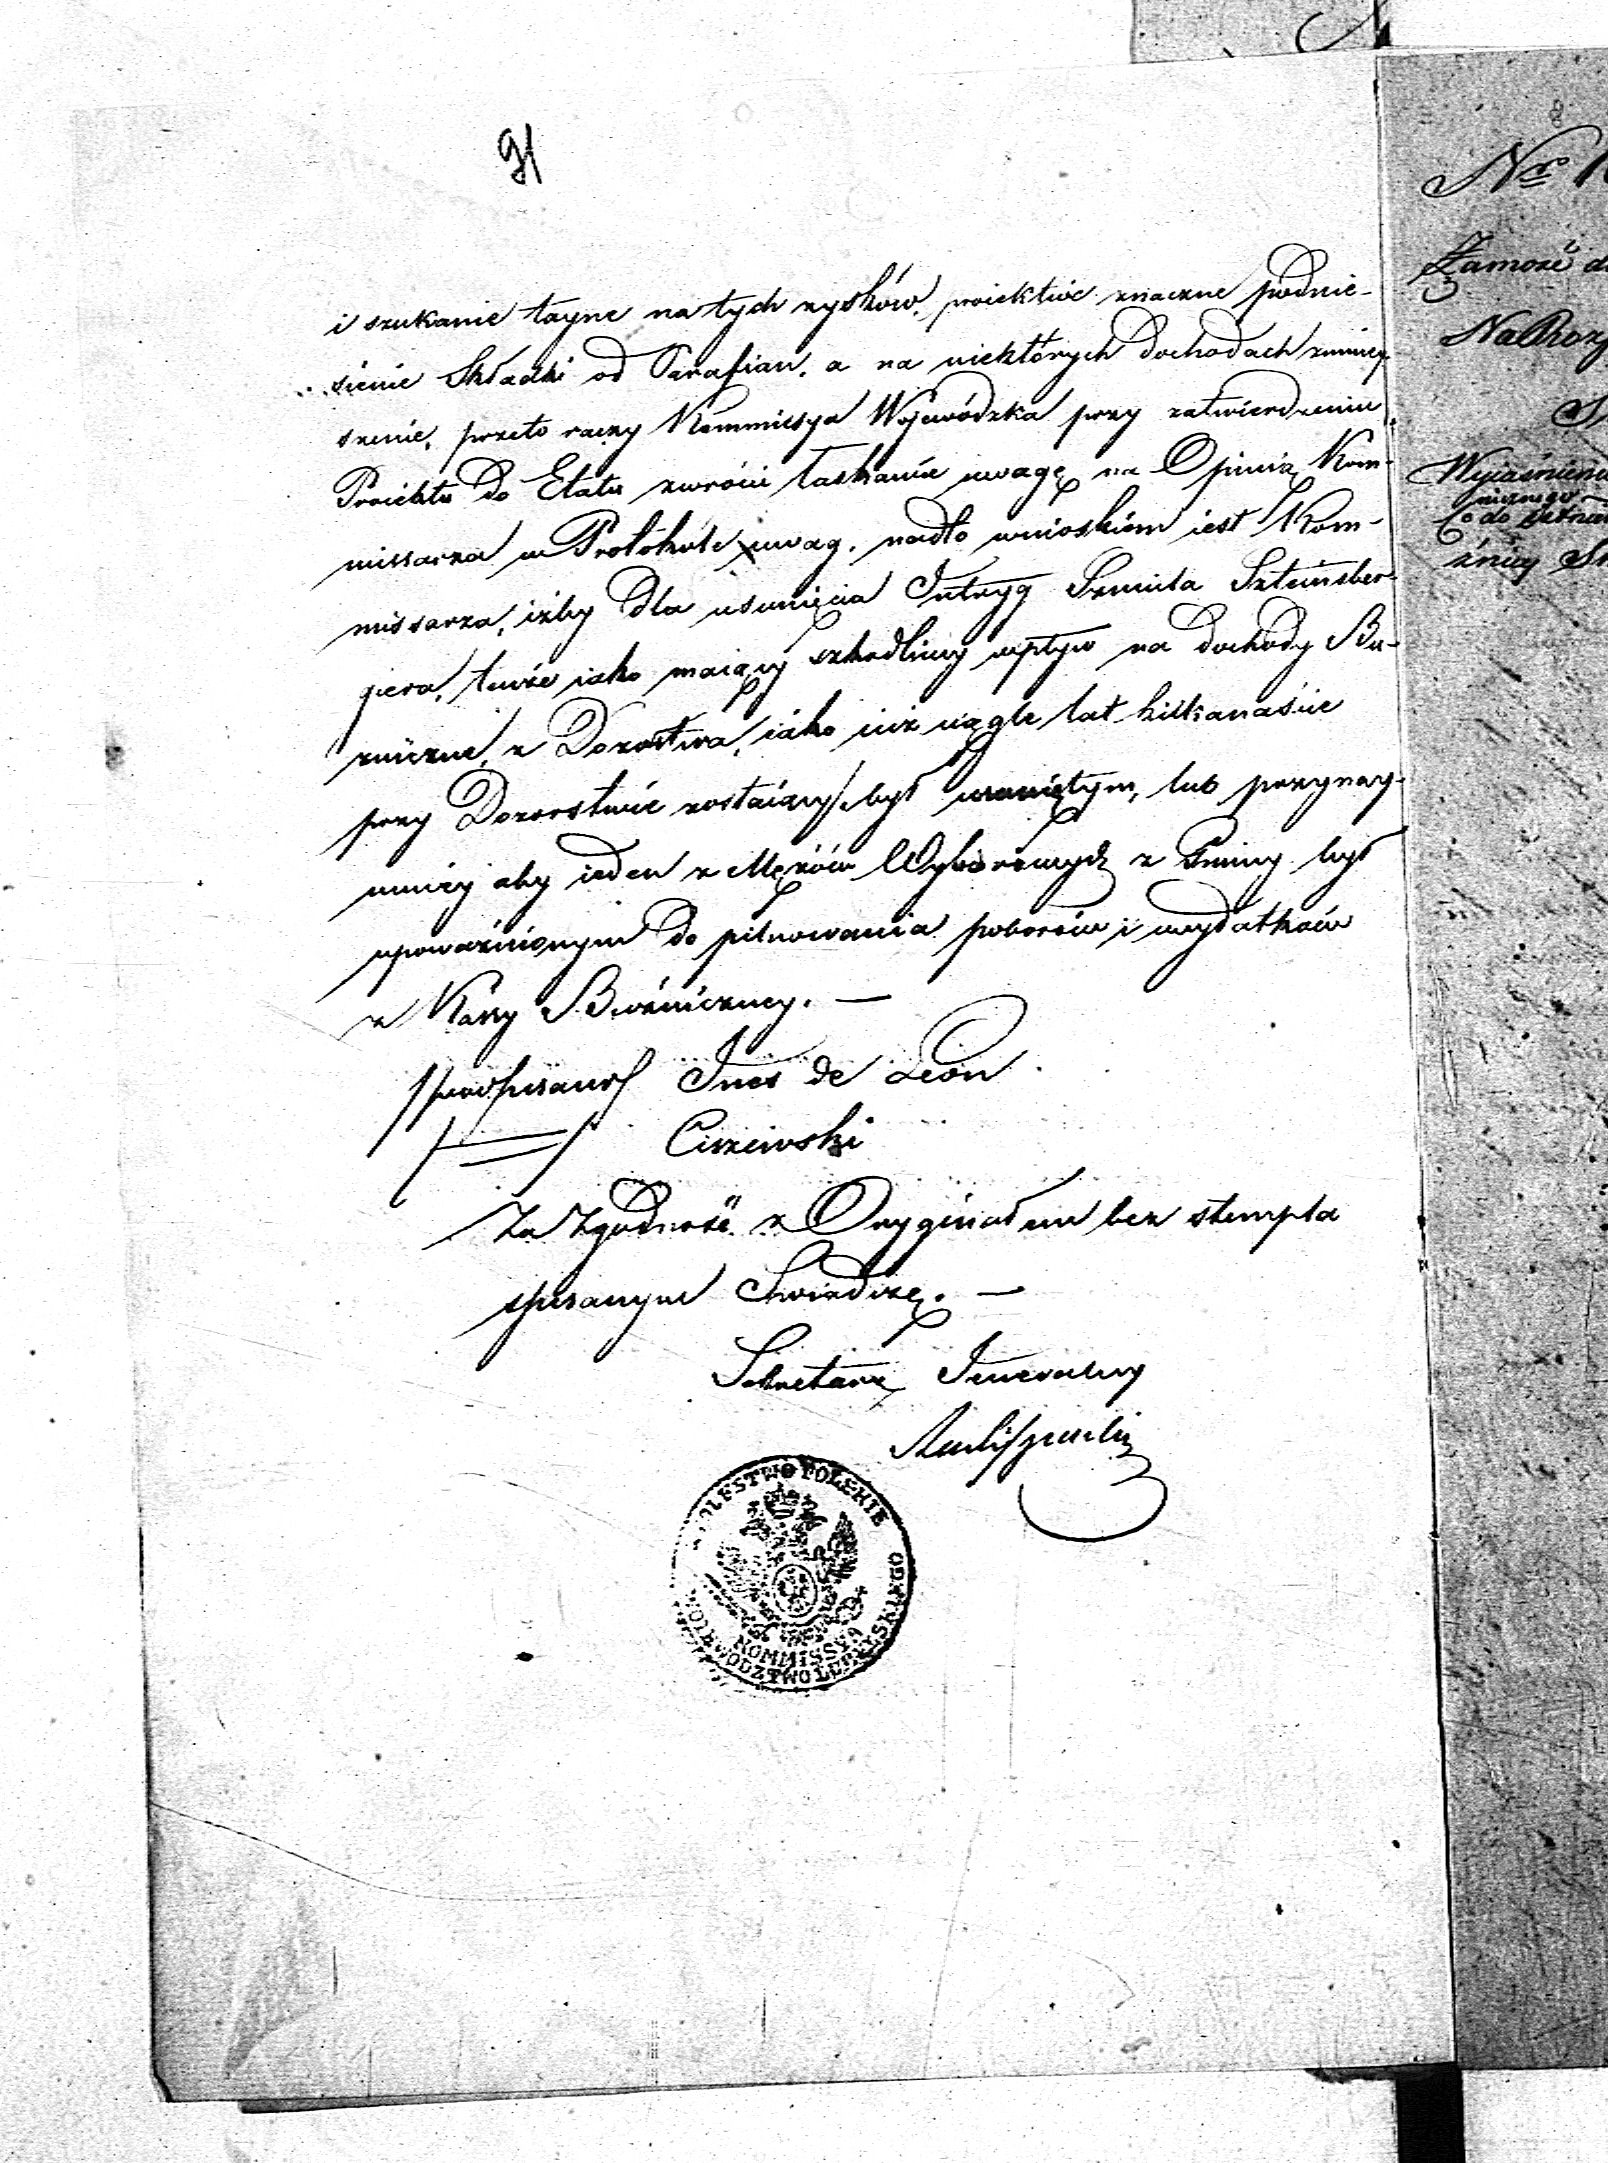 91
i szukanie tayne na tych zysków, proiektuie znaczne podnie-
sienie Składki od Parafian, a na niektórych dochodach zmniey-
szenie, przeto raczy Kommissya Wojewódzka przy zatwierdzeniu
Proiektu do Etatu zwrócić łaskawie uwagę na Opinią Kom-
missarza w Protokule uwag, nadto wnioskiem iest Kom-
missarza, iżby dla usunięcia Intryg Szmula Szteinsber-
gera, tenże iako maiący szkodliwy wpływ na dochody Bu-
zniczne, z Dozorstwa, iako iuż ciągle lat kilkanaście
przy Dozorstwie zostaiący, był usuniętym, lub przynay-
mniey aby ieden z Mężów Wyborowych z Gminy był
upoważnionym do pilnowania poborów i wydatków
z Kassy Bużniczney. —
/podpisano/ Ines de Leon
Ciszewski
Za Zgodność z Oryginałem bez stempla
spisanym Swiadczę. —
Sekretarz Generalny
KROLESTWO POLSKIE
KOMMISSYA
WOIEWODZTWO LUBELSKIEGO
Nro
Zamość d
Na Rozp
Wyiaśnienie
Co do
źnicy